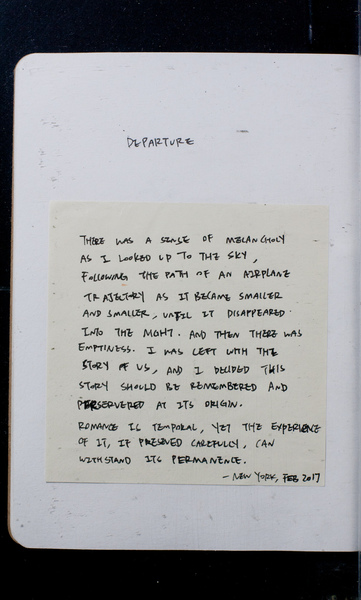 DEPARTURE
THERE WAS A SENSE OF MELANCHOLY
AS I LOOKED UP TO THE SKY,
FOLLOWING THE PATH OF AN AIRPLANE
TRAJECTORY AS IT BECAME SMALLER
AND SMALLER, UNTIL IT DISAPPEARED
INTO THE NIGHT. AND THEN THERE WAS
EMPTINESS. I WAS LEFT WITH THE
STORY OF US, AND I DECIDED THIS
STORY SHOULD BE REMEMBERED AND
PERSERVERED AT ITS ORIGIN.
ROMANCE IS TEMPORAL, YET THE EXPERIENCE
OF IT, IF PRESERVED CAREFULLY, CAN
WITHSTAND ITS PERMANENCE.
– NEW YORK, FEB 2017